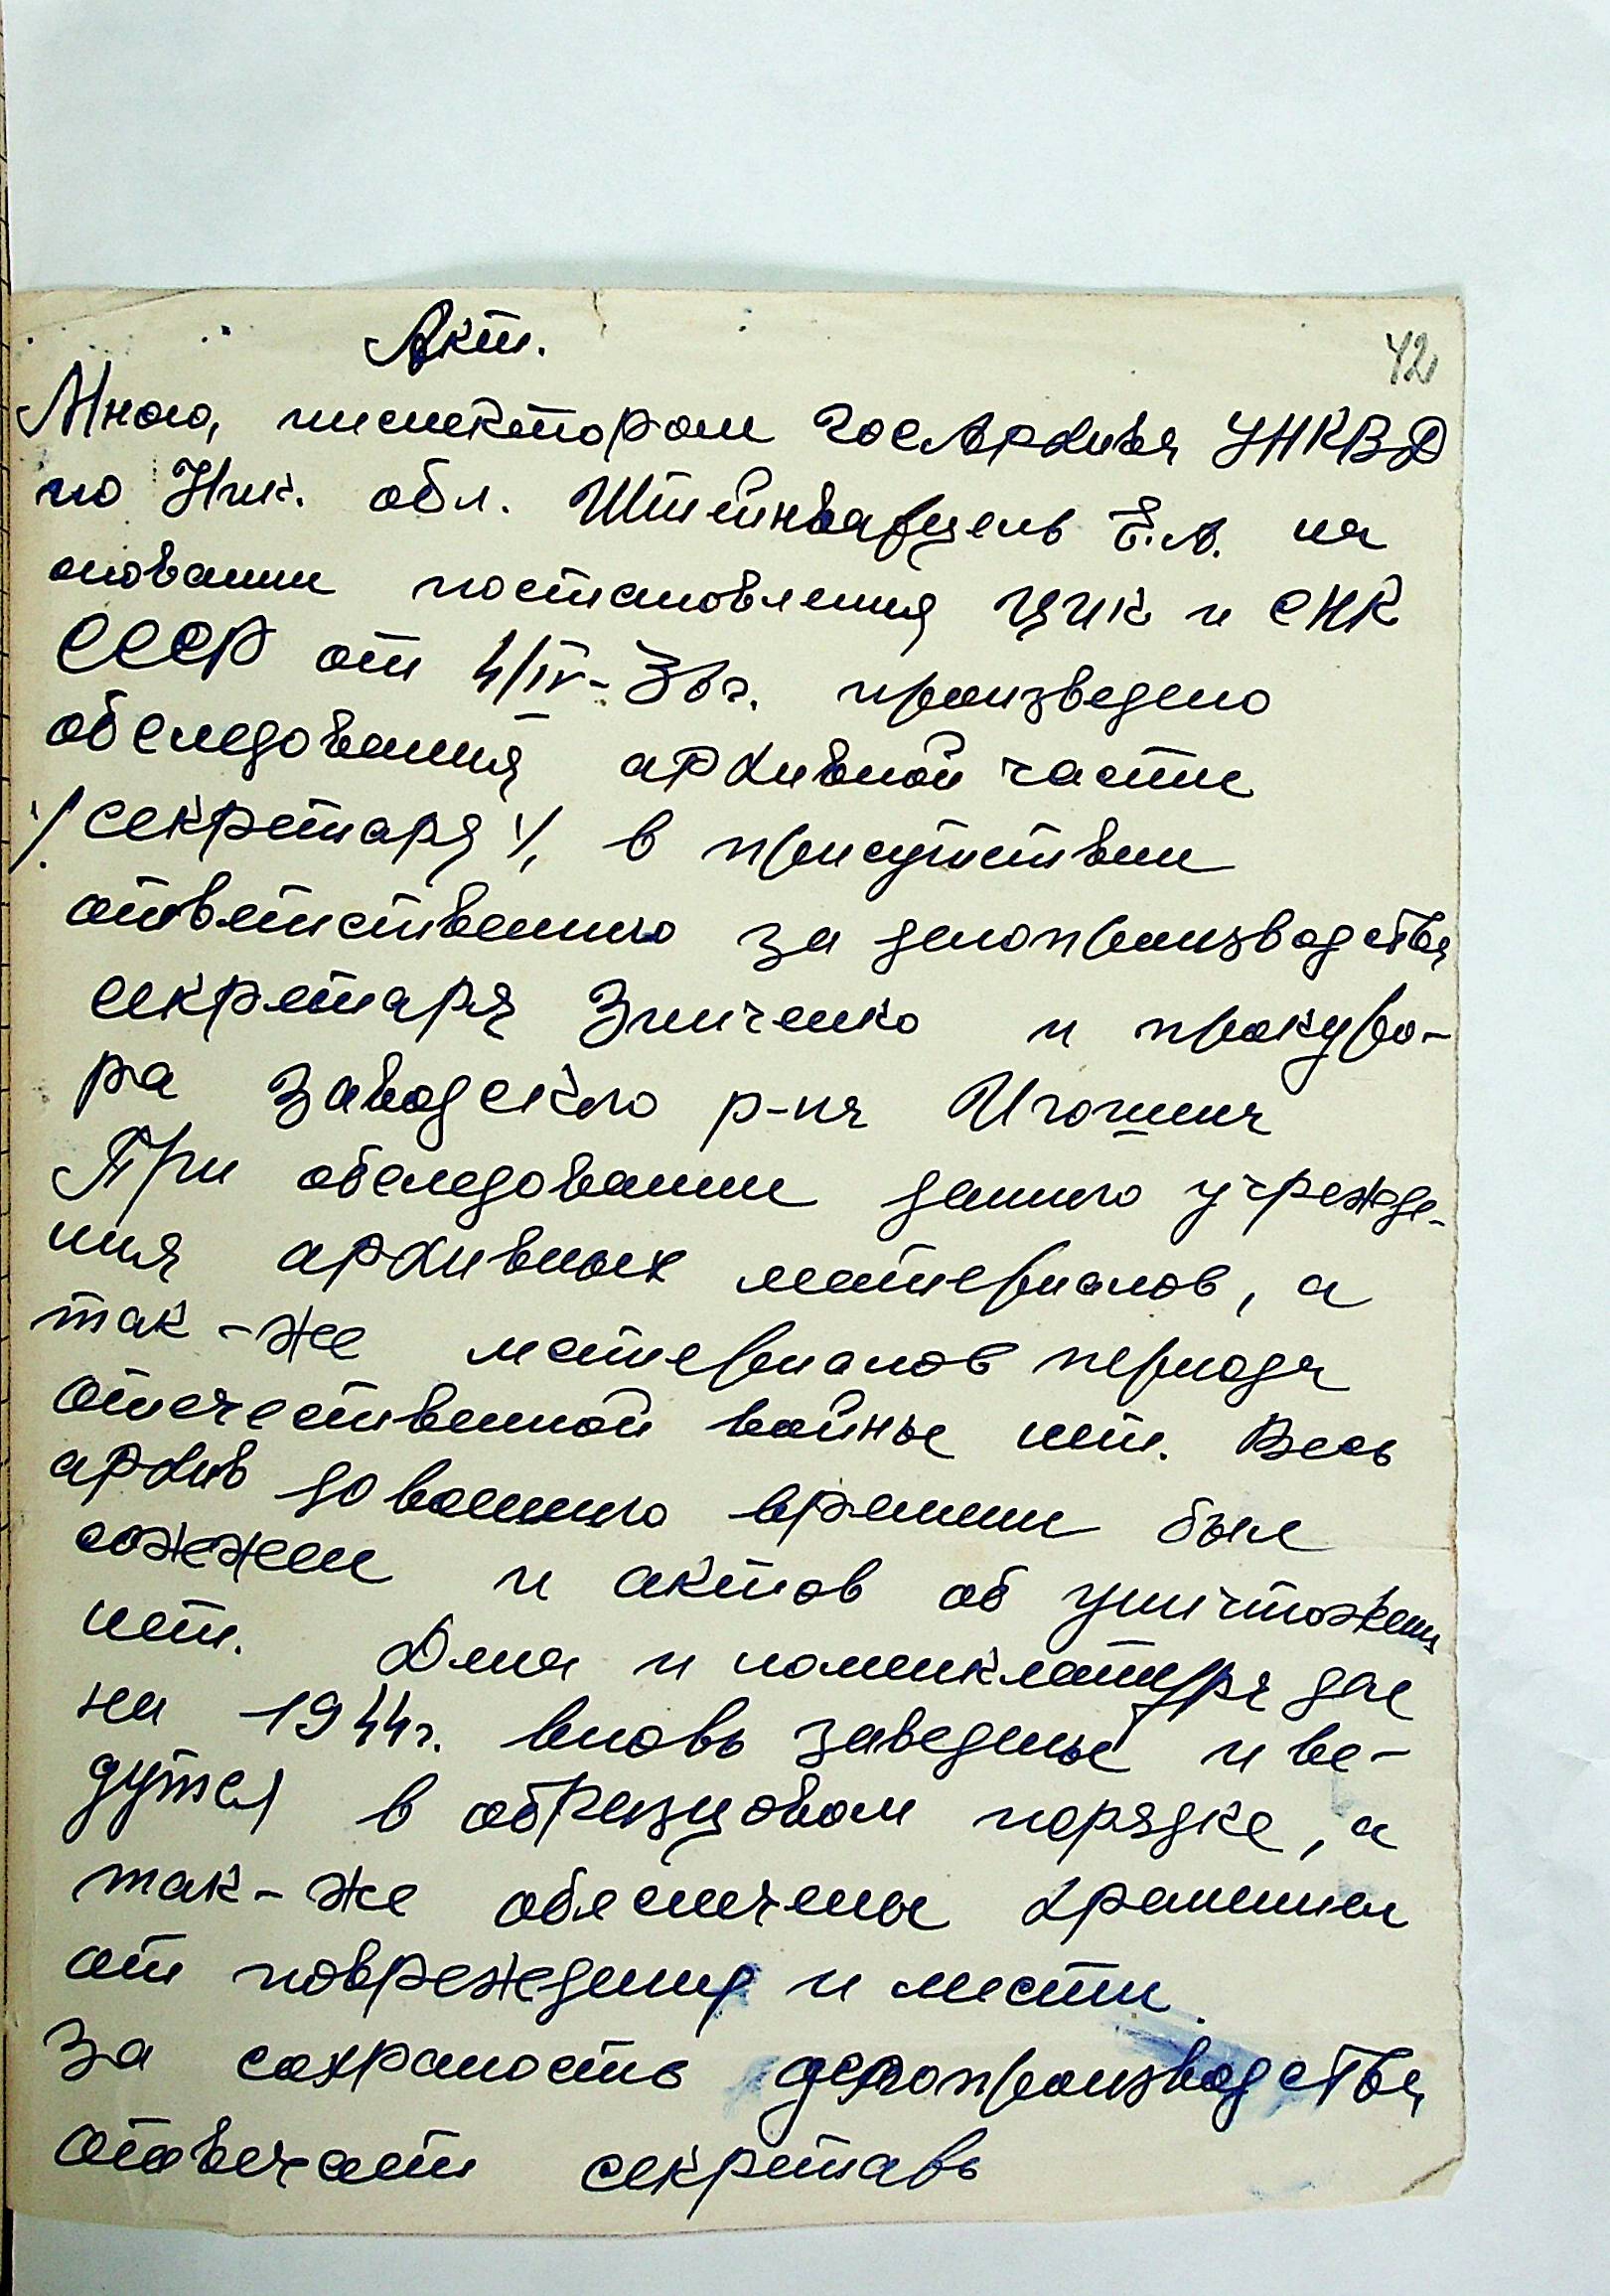 Акт.
42
Мною, инспектором Госархива УНКВД
по Ник. обл. Штейнварцель Е.А. на
основании постановления ЦИК и СНК
СССР от 4/IV-36г. произведено
обследования архивной части
/.секретаря ./. в присутствии
ответственного за делопроизводства
секретаря Зинченко и прокуро-
ра Заводского р-на Игошина
При обследовании данного учрежде-
ния архивных материалов, а
так-же материалов периода
отечественной войны нет. Весь
архив довоенного времени был
сожжен и актов об уничтожении
нет. Дела и номенклатура дел
на 1944г. вновь заведены и ве-
дутся в образцовом порядке, а
так-же обеспечены хранением
от повреждения и мести
За сохраность делопроизводства
отвечает секретарь